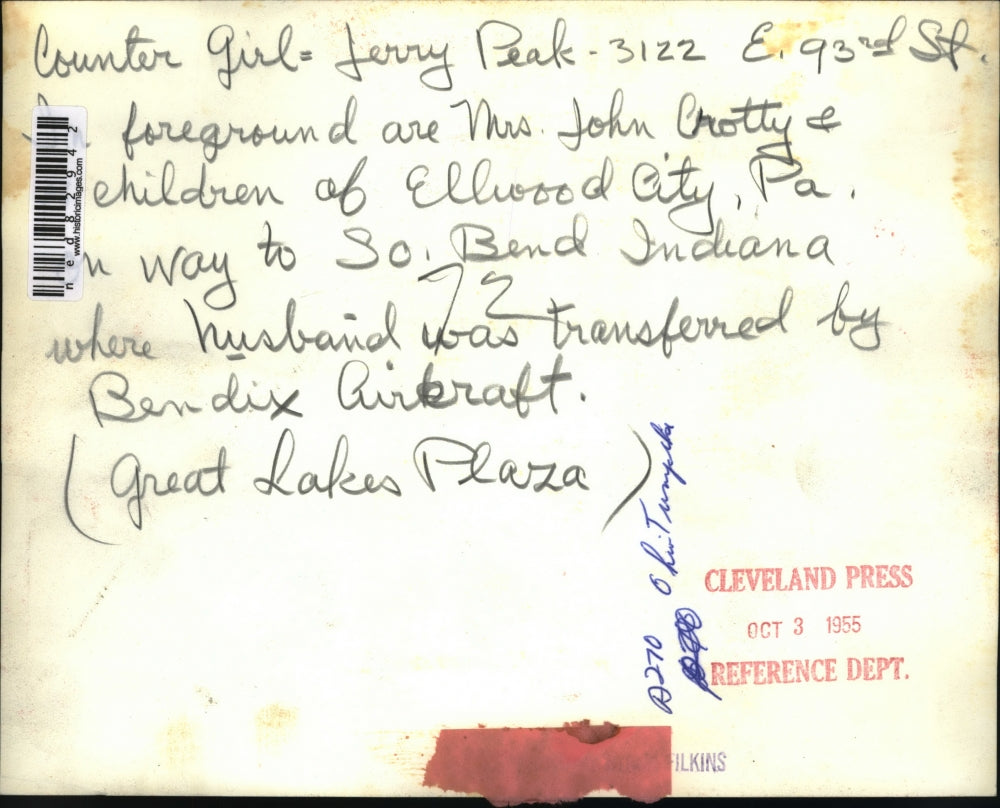 Counter Girl = Jerry Peak - 3122 E. 93rd St.
foreground are Mrs. John Crotty &
children of Ellwood City, Pa.
n way to So. Bend Indiana
72
where husband was transferred by
Bendix Airkraft.
(Great Lakes Plaza)
ned82942
www.historicimages.com
A270 Ohio Turnpike
CLEVELAND PRESS
OCT 3 1955
REFERENCE DEPT.
FILKINS